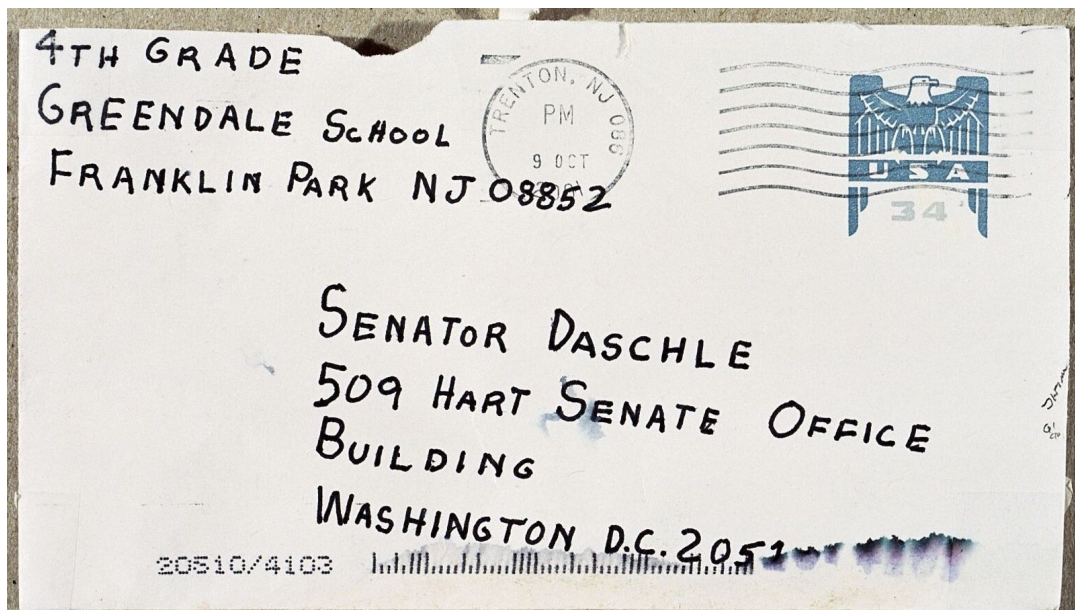 4TH GRADE
GREENDALE SCHOOL
FRANKLIN PARK NJ 08852
TRENTON, NJ 086
PM
9 OCT
USA
34
SENATOR DASCHLE
509 HART SENATE OFFICE
BUILDING
WASHINGTON D.C. 2051
20510/4103